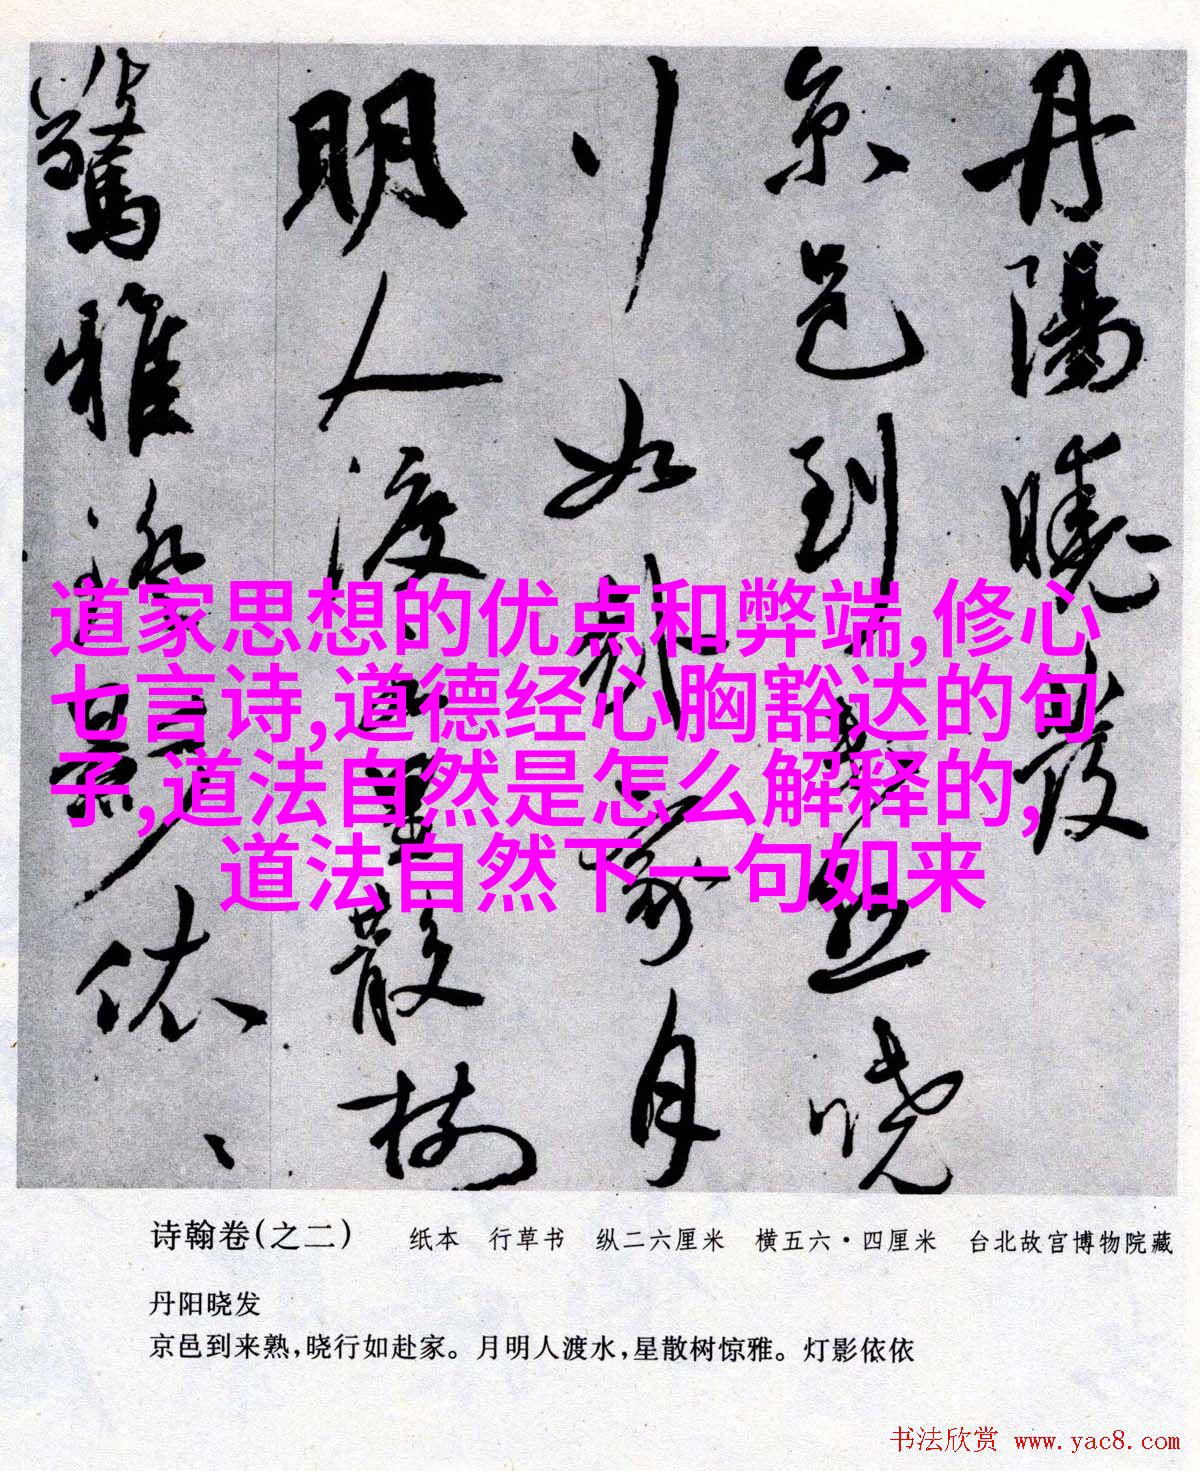 丹陽曉發
京邑到來熟曉
行如赴家月
明人渡水星散樹
驚雅燈影依依
道家思想的优点和弊端,修心
七言诗,道德经心胸豁达的句
子,道法自然是怎么解释的,
道法自然下一句如来
诗翰卷(之二) 纸本 行草书 纵二六厘米 横五六·四厘米 台北故宫博物院藏
丹阳晓发
京邑到来熟,晓行如赴家。月明人渡水,星散树惊雅。灯影依依
书法欣赏 www.yac8.com